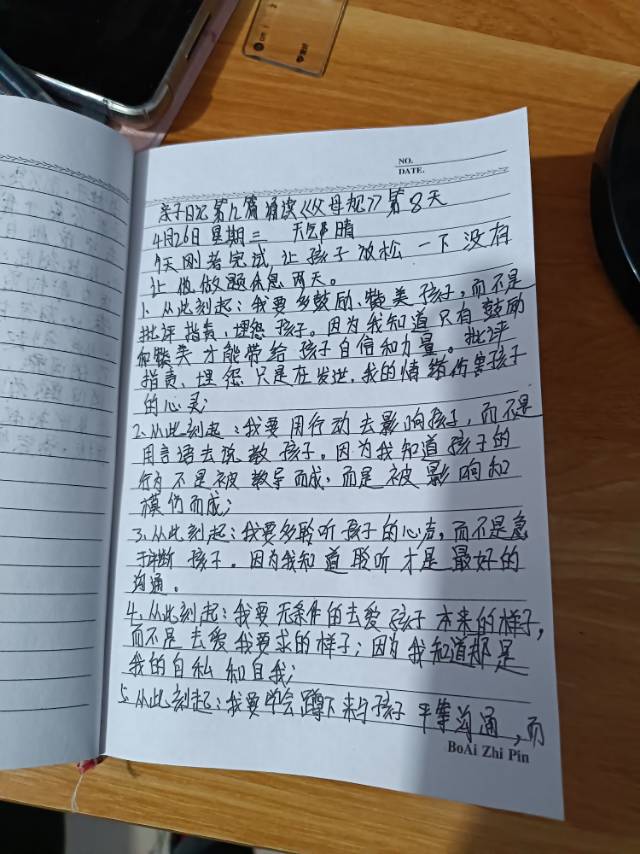 NO.
DATE.
亲子日记第几篇 诵读《父母规》第8天
4月26日 星期二 天气晴
今天刚考完试，让孩子放松一下没有
让他做题休息两天。
1、从此刻起：我要多鼓励、赞美孩子，而不是
批评指责、埋怨孩子。因为我知道只有鼓励
和赞美才能带给孩子自信和力量。批评
指责、埋怨只是在发泄，我的情绪伤害孩子
的心灵；
2、从此刻起：我要用行动去影响孩子，而不是
用言语去说教孩子。因为我知道孩子的
行为不是被教导而成，而是被影响和
模仿而成；
3、从此刻起：我要多聆听孩子的心声，而不是急
于评断孩子。因为我知道聆听才是最好的
沟通。
4、从此刻起：我要无条件的去爱孩子本来的样子，
而不是去爱我要求的样子；因为我知道那是
我的自私和自我；
5、从此刻起：我要学会蹲下来与孩子平等沟通，而
BoAi Zhi Pin